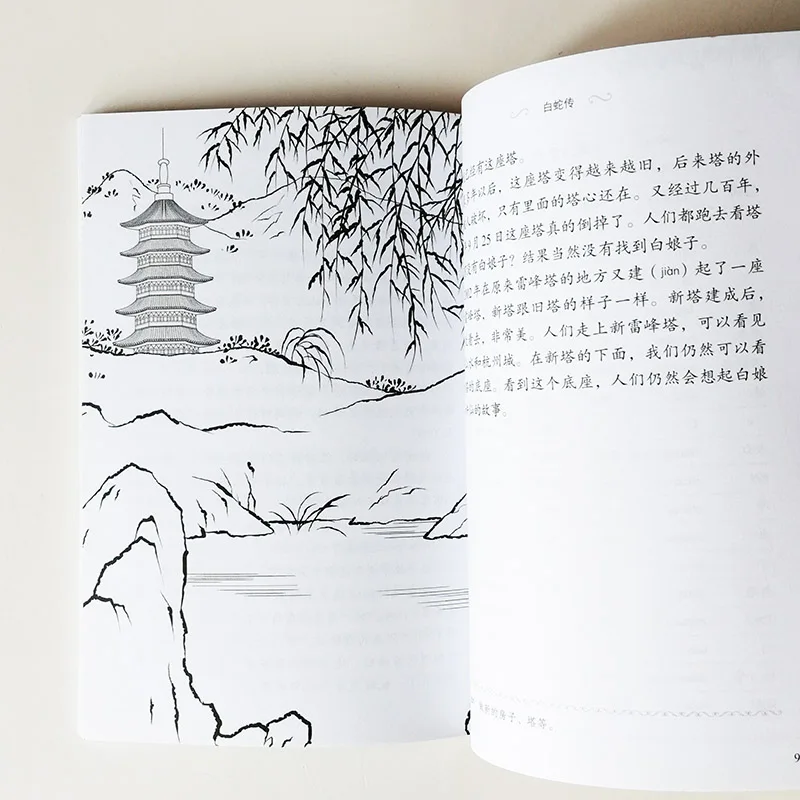 白蛇传
经有这座塔。
年以后，这座塔变得越来越旧，后来塔的外
人破坏，只有里面的塔心还在。又经过几百年，
月25日这座塔真的倒掉了。人们都跑去看塔
有白娘子？结果当然没有找到白娘子。
年在原来雷峰塔的地方又建（jiàn）起了一座
塔，新塔跟旧塔的样子一样。新塔建成后，
去，非常美。人们走上新雷峰塔，可以看见
和杭州城。在新塔的下面，我们仍然可以看
的底座。看到这个底座，人们仍然会想起白娘
的故事。
房子、塔等。
9